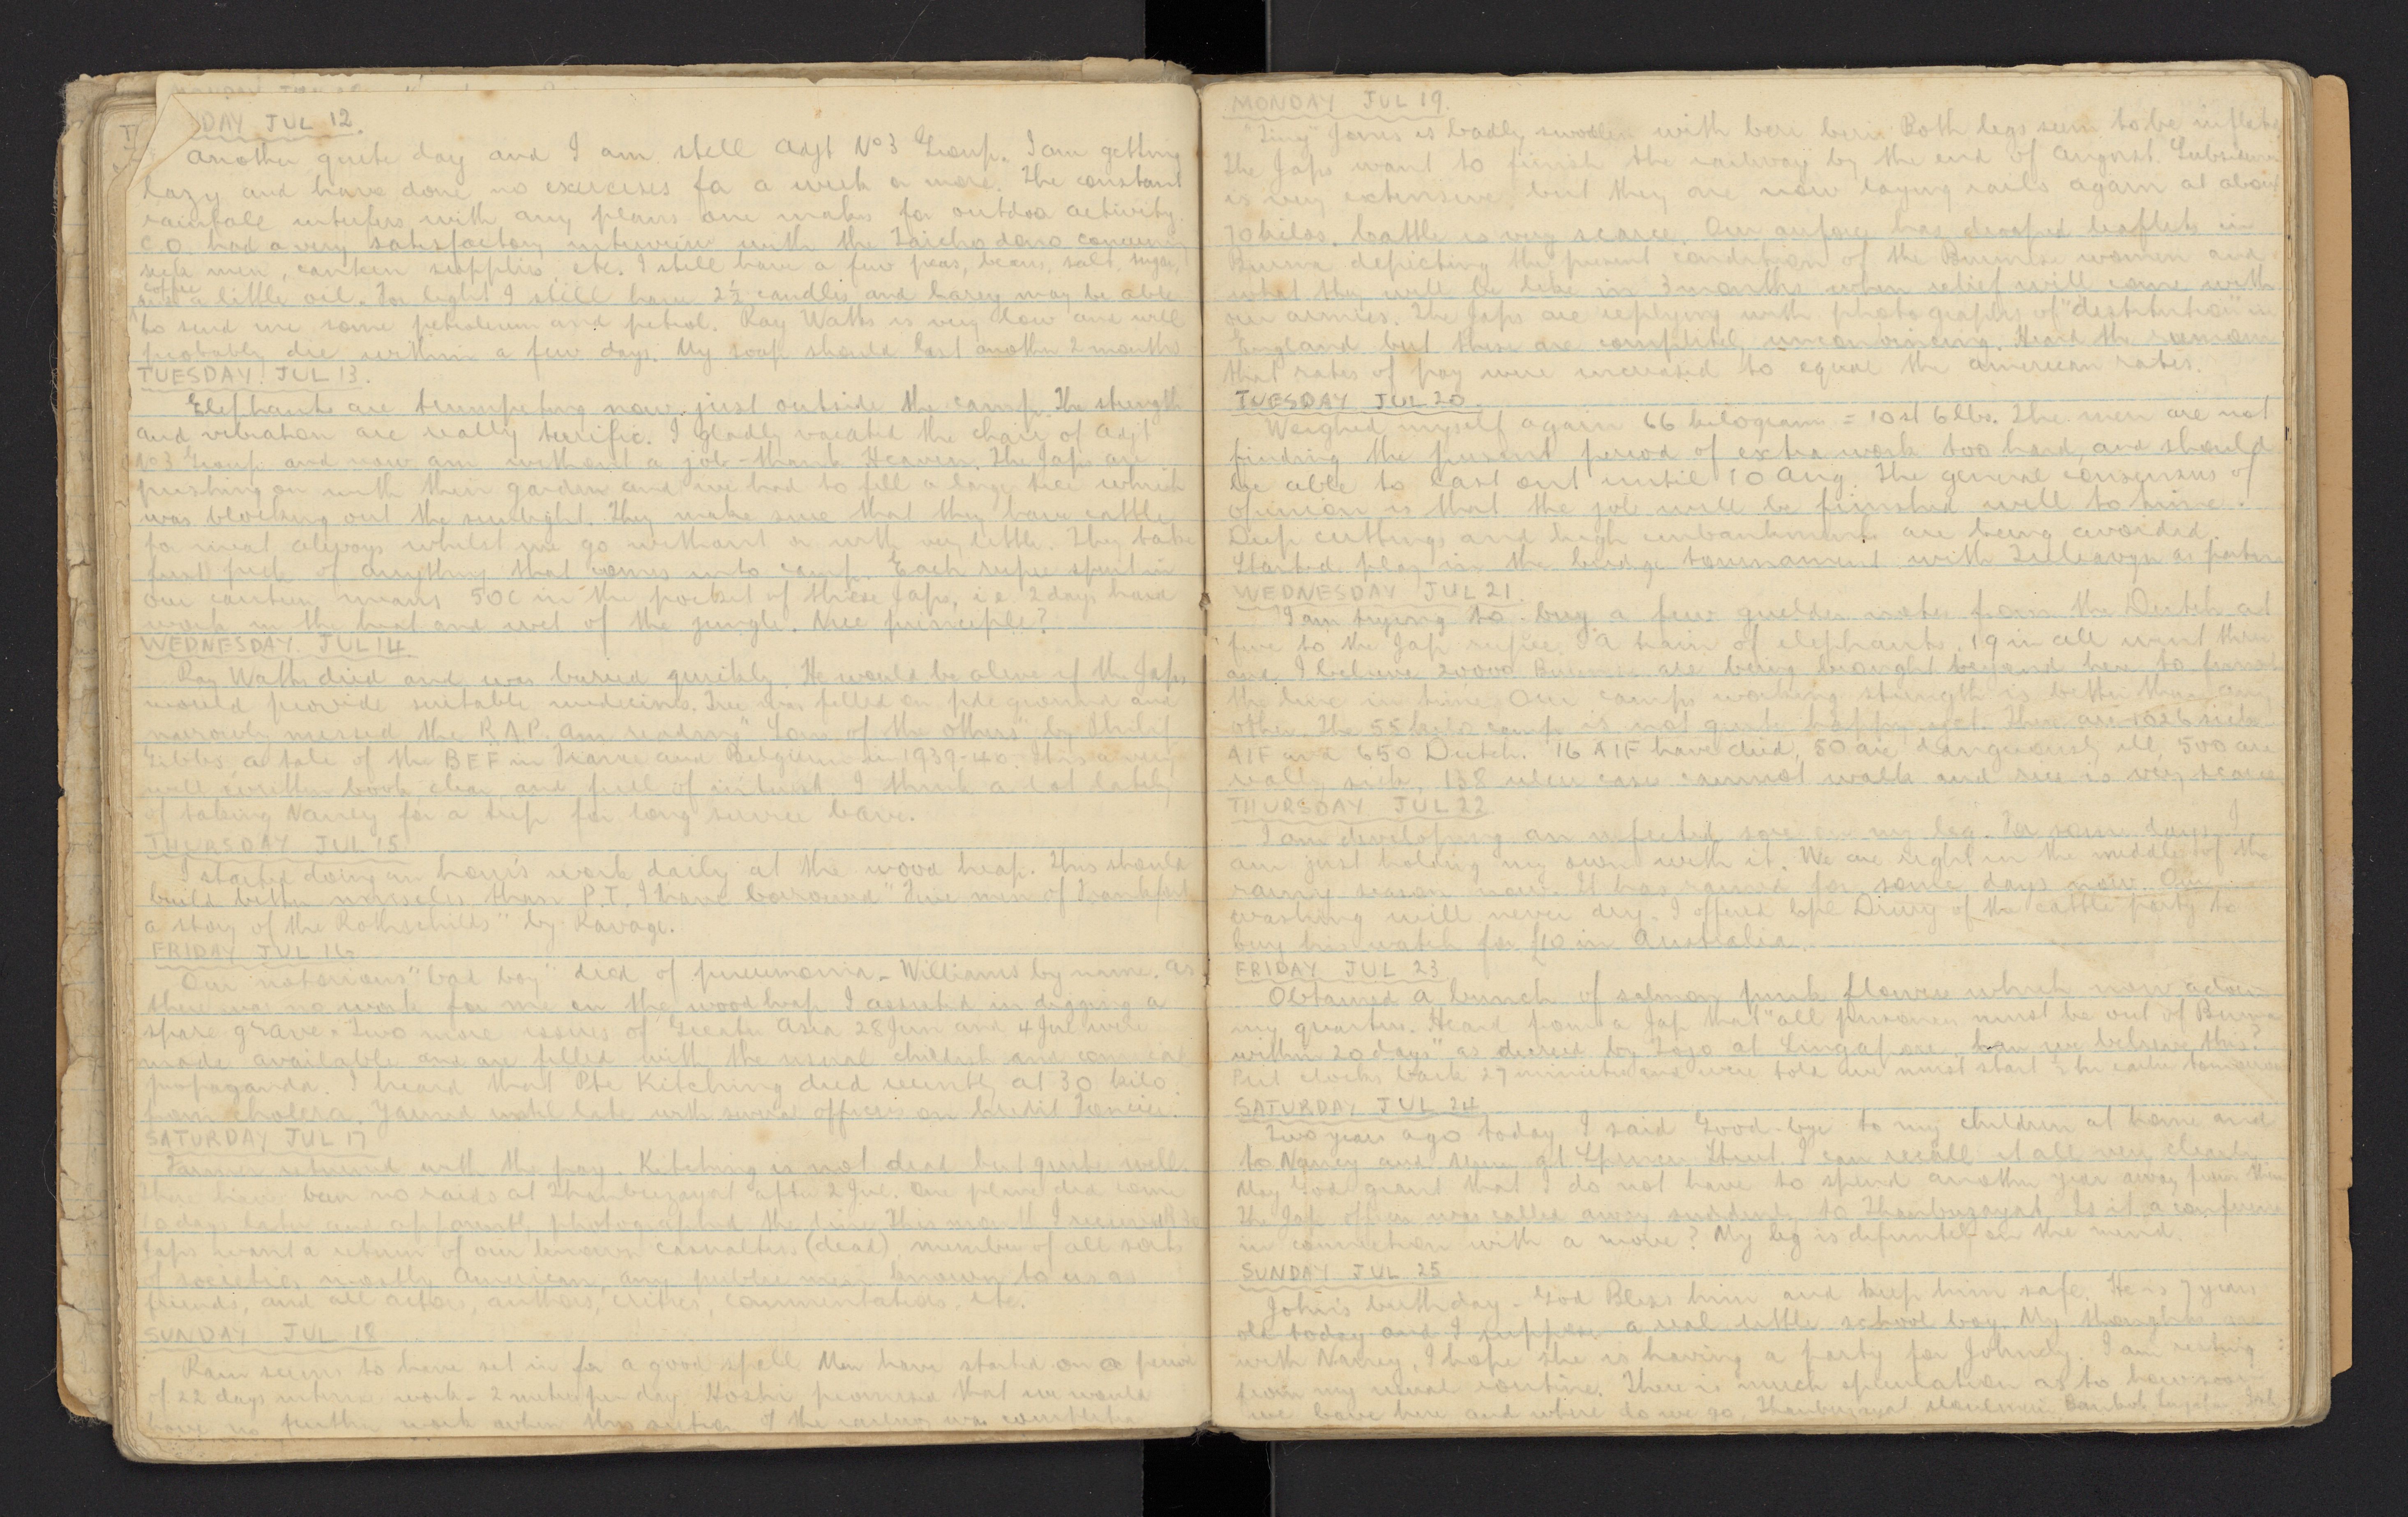 DAY JUL 12.
Another quite day and I am still Adjt No 3 Group. I am getting
lazy and have done no exercises for a week or more. The constant
rainfall interfers with any plans one makes for outdoor activity.
C.O. had a very satisfactory interview with the Taicho dono concerning
sick men, canteen supplies, etc. I still have a few peas, beans, salt, sugar,
coffee
and a little oil. For light I still have 2½ candles and Carey may be able
to send me some petroleum and petrol. Ray Watts is very low and will
probably die within a few days. My soap should last another 2 months
TUESDAY. JUL 13.
Elephants are trumpeting now just outside the camp. The strength
and vibration are really terrific. I gladly vacated the chair of Adjt
No 3 Group and now am without a job - thank Heaven. The Japs are
pushing on with their garden and we had to fell a large tree which
was blocking out the sunlight. They make sure that they have cattle
for meat always whilst we go without or with very little. They take
first pick of anything that comes into camp. Each rupee spent in
our canteen means 50c in the pocket of these Japs, i.e. 2 days hard
work in the heat and wet of the jungle. Nice principle?
WEDNESDAY. JUL 14.
Ray Watts died and was buried quickly. He would be alive if the Japs
would provide suitable medicine. Tree was felled on pde ground and
narrowly missed the R.A.P. Am reading "Sons of the others" by Philip
Gibbs, a tale of the BEF in France and Belgium in 1939-40. It is a very
well written book, clear and full of interest. I think a lot lately
of taking Nancy for a trip for long service leave.
THURSDAY JUL 15
I started doing an hours work daily at the wood heap. This should
build better muscles than P.T. I have borrowed "Five men of Frankfort
a story of the Rothschilds" by Ravage.
FRIDAY JUL 16
Our notorious "bad boy" died of pneumonia - Williams by name. As
there was no work for me on the wood heap I assisted in digging a
spare grave. Two more issues of Greater Asia 28 Jun and 4 Jul were
made available and are filled with the usual childish and comical
propaganda. I heard that Pte Kitching died recently at 30 kilo
from cholera. Yarned until late with several officers on
SATURDAY JUL 17
returned with the pay. Kitching is not dead but quite well.
There have been no raids at Thanbuzayat after 2 Jul. One plane did come
10 days later and apparently photographed the line. This month I received
Japs want a return of our known casualties (dead), member of all sorts
of societies mostly American, any public men known to us as
friends, and all actors, authors, critics, commentators. etc.
SUNDAY JUL 18
Rain seems to have set in for a good spell. Men have started on a period
of 22 days intense work - 2 metres per day. Hoshi promised that we would
have no further work when this section of the railway was completed
MONDAY JUL 19.
"Tiny" Jones is badly swollen with beri beri. Both legs seem to be inflated
The Japs want to finish the railway by the end of August. Subsidence
is very extensive but they are now laying rails again at about
70 kilos. Cattle is very scarce. Our airforce has dropped leaflets in
Burma depicting the present condition of the Burmese women and
what they will be like in 3 months when relief will come with
our armies. The Japs are replying with photographs of "destitution" in
England but these are completely unconvincing. Heard the rumour
that rates of pay were increased to equal the American rates.
TUESDAY JUL 20.
Weighed myself again 66 kilogram = 10 st 6 lbs. The men are not
finding the present period of extra work too hard, and should
be able to last out until 10 Aug. The general consensus of
opinion is that the job will be finished well to time.
Deep cuttings and high embankments are being avoided.
Started play in the bridge tournament with as partner
WEDNESDAY JUL 21.
I am trying to buy a few guilder notes from the Dutch at
five to the Jap rupee. A train of elephants, 19 in all went thru
and I believe 20000 Burmese are being brought beyond here to finish
the line in time. Our camps working strength is better than any
other. The 55 kilo camp is not quite happy yet. There are 1026 sick
AIF and 650 Dutch. 16 AIF have died, 50 are dangerously ill, 500 are
really sick, 138 ulcer case cannot walk and rice is very scarce
THURSDAY JUL 22
I am developing an infected sore on my leg. For some days I
am just holding my own with it. We are right in the middle of the
rainy season now. It has rained for some days now. Our
washing will never dry. I offered Cpl Drury of the cattle party to
buy his watch for £10 in Australia.
FRIDAY JUL 23
Obtained a bunch of salmon pink flowers which now adorn
my quarters. Heard from a Jap that "all prisoners must be out of Burma
within 20 days" as decreed by Tojo at Singapore. Can we believe this?
Put clocks back 27 minutes and were told we must start ½ hr earlier tomorrow
SATURDAY JUL 24
Two years ago today I said Good-bye to my children at home and
to Nancy and at Spencer Street. I can recall it all very clearly
May God grant that I do not have to spend another year away from them
The Jap officer was called away suddenly to Thanbuzayat. Is it a conference
in connection with a move? My leg is definitely on the mend.
SUNDAY JUL 25
John's birthday - God Bless him and keep him safe. He is 7 years
old today and I suppose a real little school boy. My thoughts are
with Nancy, I hope she is having a party for Johndy. I am resting
from my usual routine. There is much speculation as to how soon
we leave here and where do we go. Thanbuzayat Moulmein Bankok